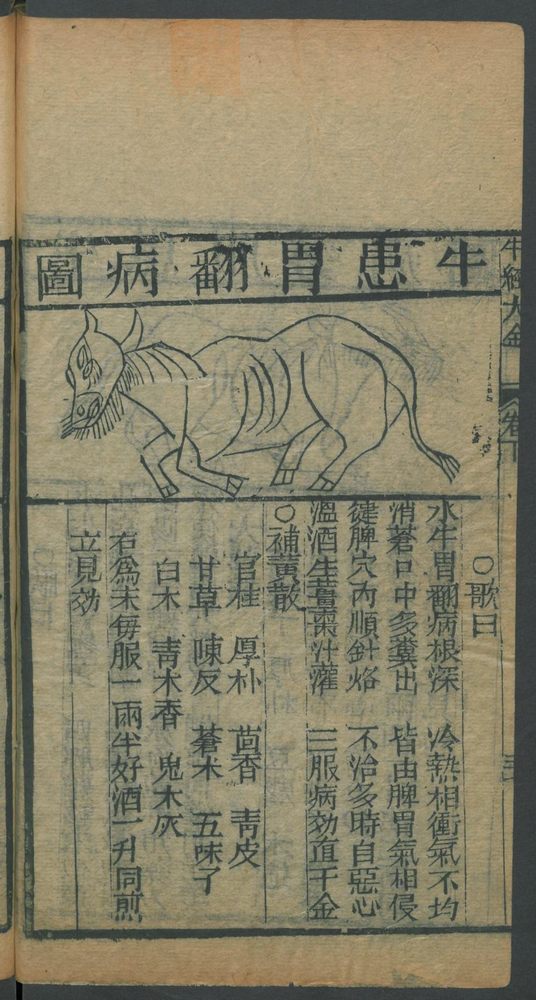 牛患胃翻病圖
牛經大全
卷下
○歌曰
水牛胃翻病根深　冷熱相衝氣不均
消蒼口中多糞出　皆由脾胃氣相侵
健脾穴內順針烙　不治多時自惡心
溫酒生薑棗汁灌　三服病効直千金
○補黃散
官桂　厚朴　茴香　青皮
甘草　陳皮　蒼术　五味子
白术　青木香　鬼木灰
右為末每服一兩半好酒一升同煎
立見効